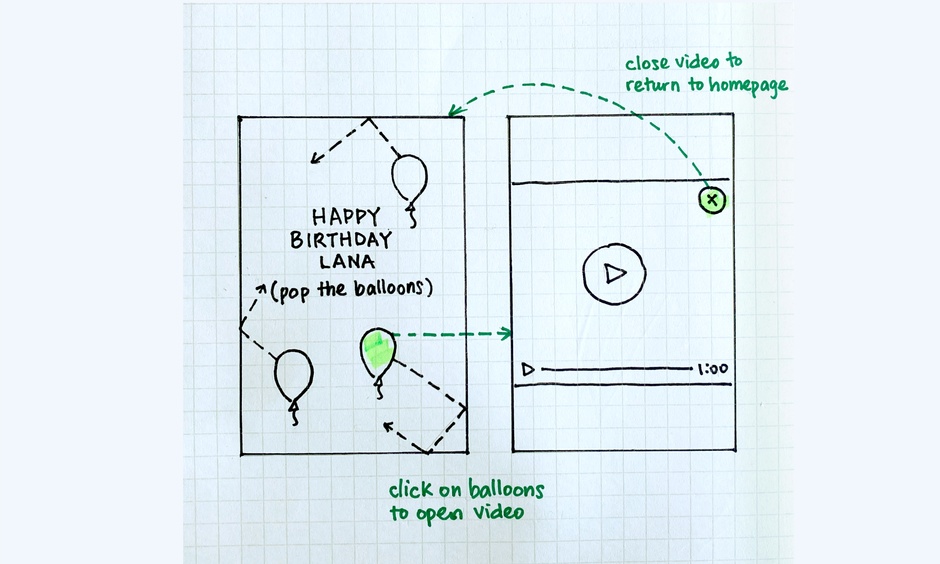 close video to
return to homepage
HAPPY
BIRTHDAY
LANA
(pop the balloons)
1:00
click on balloons
to open video